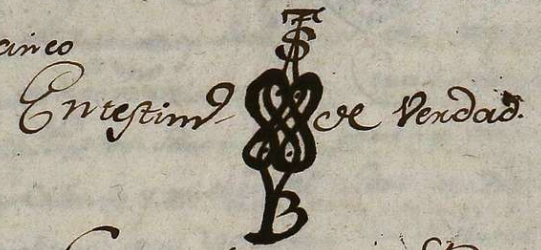 cinco
En testimº de Verdad.